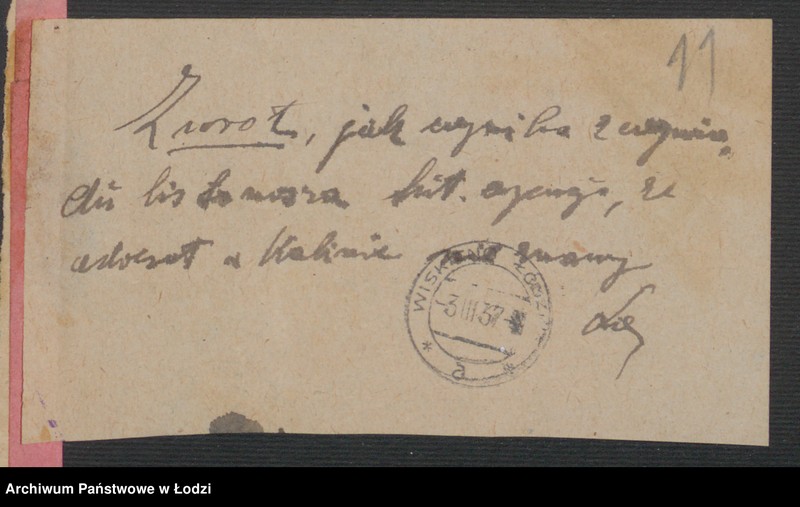 11
Zwrot, jak wynika z wywia
du listonosza tut. agencji, że
adresat w Kalinie nie znany
WISKITNO ŁÓDZI
3 III 37
a
Archiwum Państwowe w Łodzi